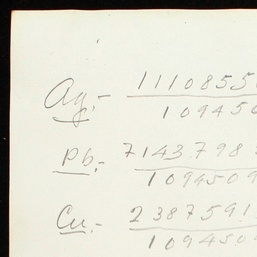 Ag.- 1110855
109450
Pb.- 7143798
1094509
Cu.- 2387591
109450